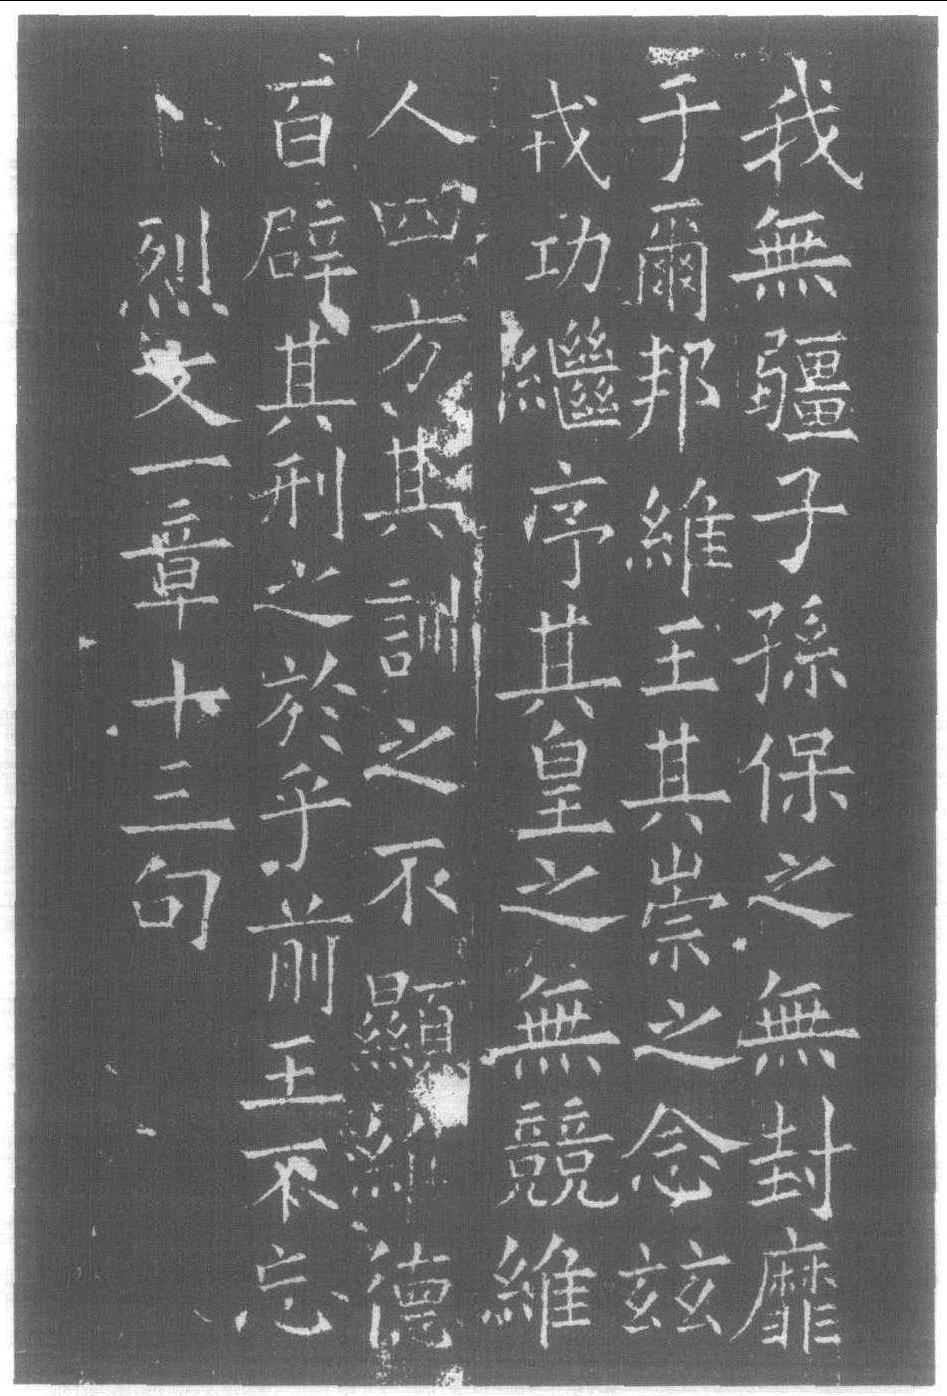 我無疆子孫保之無封靡
于爾邦維王其崇之念兹
戎功繼序其皇之無競維
人四方其訓之不顯維德
百辟其刑之於乎前王不忘
烈文一章十三句